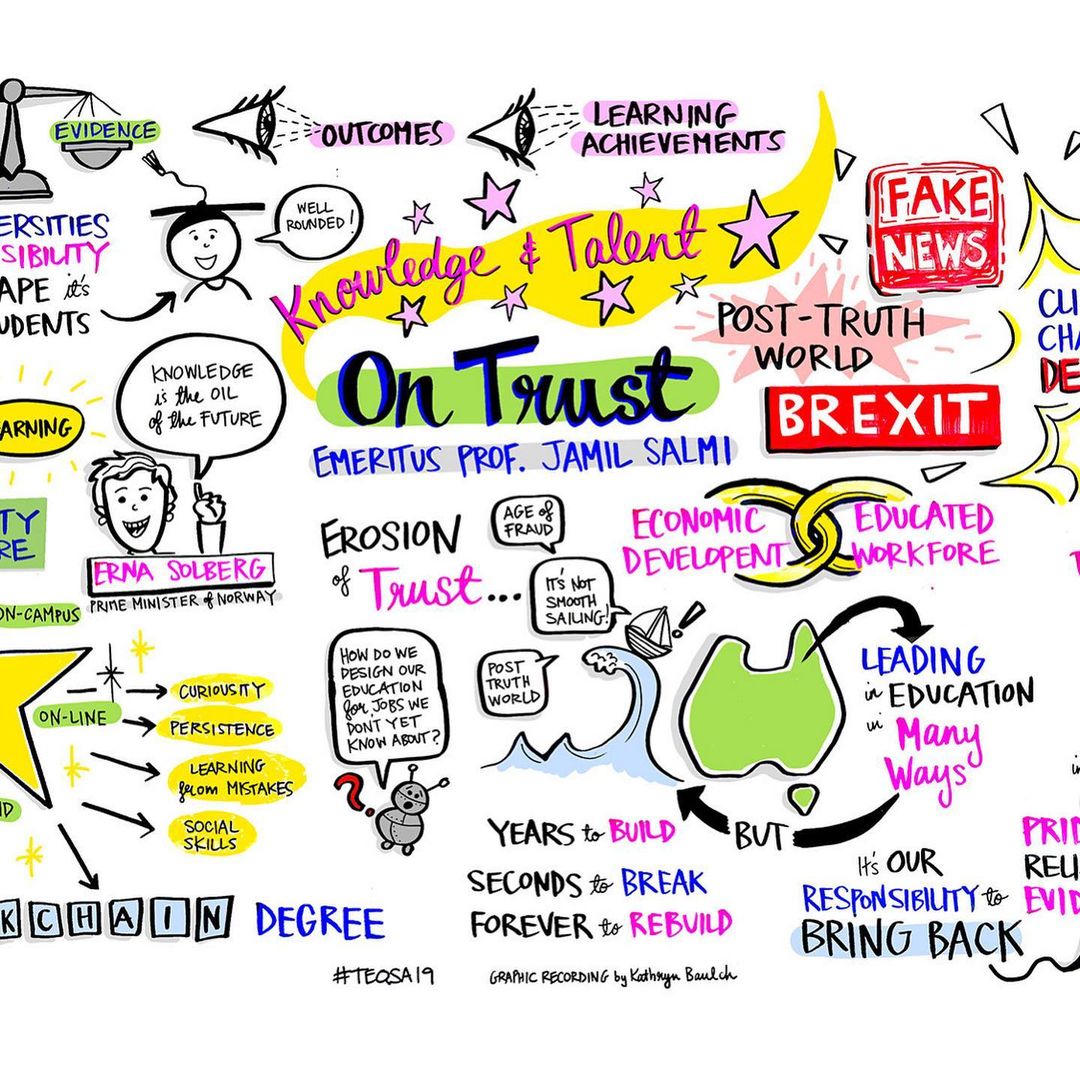 EVIDENCE
OUTCOMES
LEARNING
ACHIEVEMENTS
ERSITIES
SIBILITY
APE it's
UDENTS
WELL
ROUNDED!
Knowledge & Talent
On Trust
EMERITUS PROF. JAMIL SALMI
FAKE
NEWS
POST-TRUTH
WORLD
BREXIT
CLI
CHA
DE
KNOWLEDGE
is the OIL
of the FUTURE
ARNING
TY
RE
ERNA SOLBERG
PRIME MINISTER of NORWAY
ON-CAMPUS
ON-LINE
CURIOUSITY
PERSISTENCE
LEARNING
from MISTAKES
SOCIAL
SKILLS
KCHAIN DEGREE
EROSION
of Trust...
AGE OF
FRAUD
IT'S NOT
SMOOTH
SAILING!
POST
TRUTH
WORLD
!
HOW DO WE
DESIGN OUR
EDUCATION
for JOBS WE
DON'T YET
KNOW ABOUT?
?
ECONOMIC
DEVELOPENT
EDUCATED
WORKFORE
LEADING
in EDUCATION
in Many
Ways
BUT
YEARS to BUILD
SECONDS to BREAK
FOREVER to REBUILD
It's OUR
RESPONSIBILITY to
BRING BACK
PRID
RELI
EVID
#TEQSA19
GRAPHIC RECORDING by Kathryn Baulch